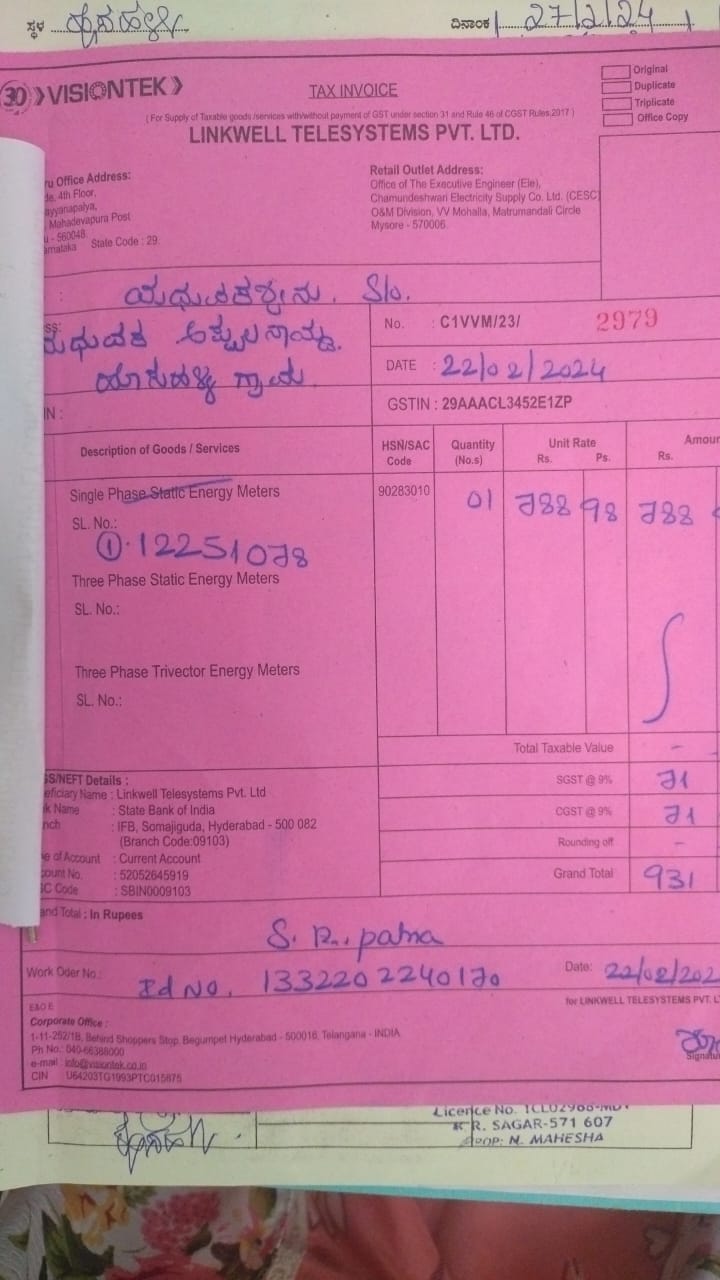 ಸ್ಥಳ
ದಿನಾಂಕ 27/2/24
30 VISIONTEK
TAX INVOICE
Original
Duplicate
Triplicate
Office Copy
( For Supply of Taxable goods /services with/without payment of GST under section 31 and Rule 46 of CGST Rules.2017 )
LINKWELL TELESYSTEMS PVT. LTD.
ru Office Address:
de, 4th Floor,
ayyanapalya,
Mahadevapura Post
u - 560048.
arnataka State Code : 29.
Retail Outlet Address:
Office of The Executive Engineer (Ele),
Chamundeshwari Electricity Supply Co. Ltd. (CESC)
O&M Division, VV Mohalla, Matrumandali Circle
Mysore - 570006.
: S/o.
ss:
ಗ್ರಾಮ
IN :
No. : C1VVM/23/ 2979
DATE : 22/02/2024
GSTIN : 29AAACL3452E1ZP
Description of Goods / Services HSN/SAC Code Quantity (No.s) Unit Rate Rs. Ps. Amour Rs.
Single Phase Static Energy Meters 90283010 01 788 98 788
SL. No.:
① 12251078
Three Phase Static Energy Meters
SL. No.:
Three Phase Trivector Energy Meters
SL. No.:
Total Taxable Value -
SGST @ 9% 71
CGST @ 9% 71
Rounding off -
Grand Total 931
GS/NEFT Details :
eficiary Name : Linkwell Telesystems Pvt. Ltd
k Name : State Bank of India
nch : IFB, Somajiguda, Hyderabad - 500 082
(Branch Code:09103)
e of Account : Current Account
count No. : 52052645919
SC Code : SBIN0009103
and Total : In Rupees
S. R. patna
Work Oder No.: Id NO. 1332202240170
Date: 22/02/202
for LINKWELL TELESYSTEMS PVT. L
E&O E
Corporate Office :
1-11-252/1B, Behind Shoppers Stop, Begumpet Hyderabad - 500016, Telangana - INDIA
Ph No.: 040-66388000
e-mail : info@visiontek.co.in
CIN U64203TG1993PTC015875
Signatu
Licence No. 1CL02968-MD
K.R. SAGAR-571 607
PROP: N. MAHESHA